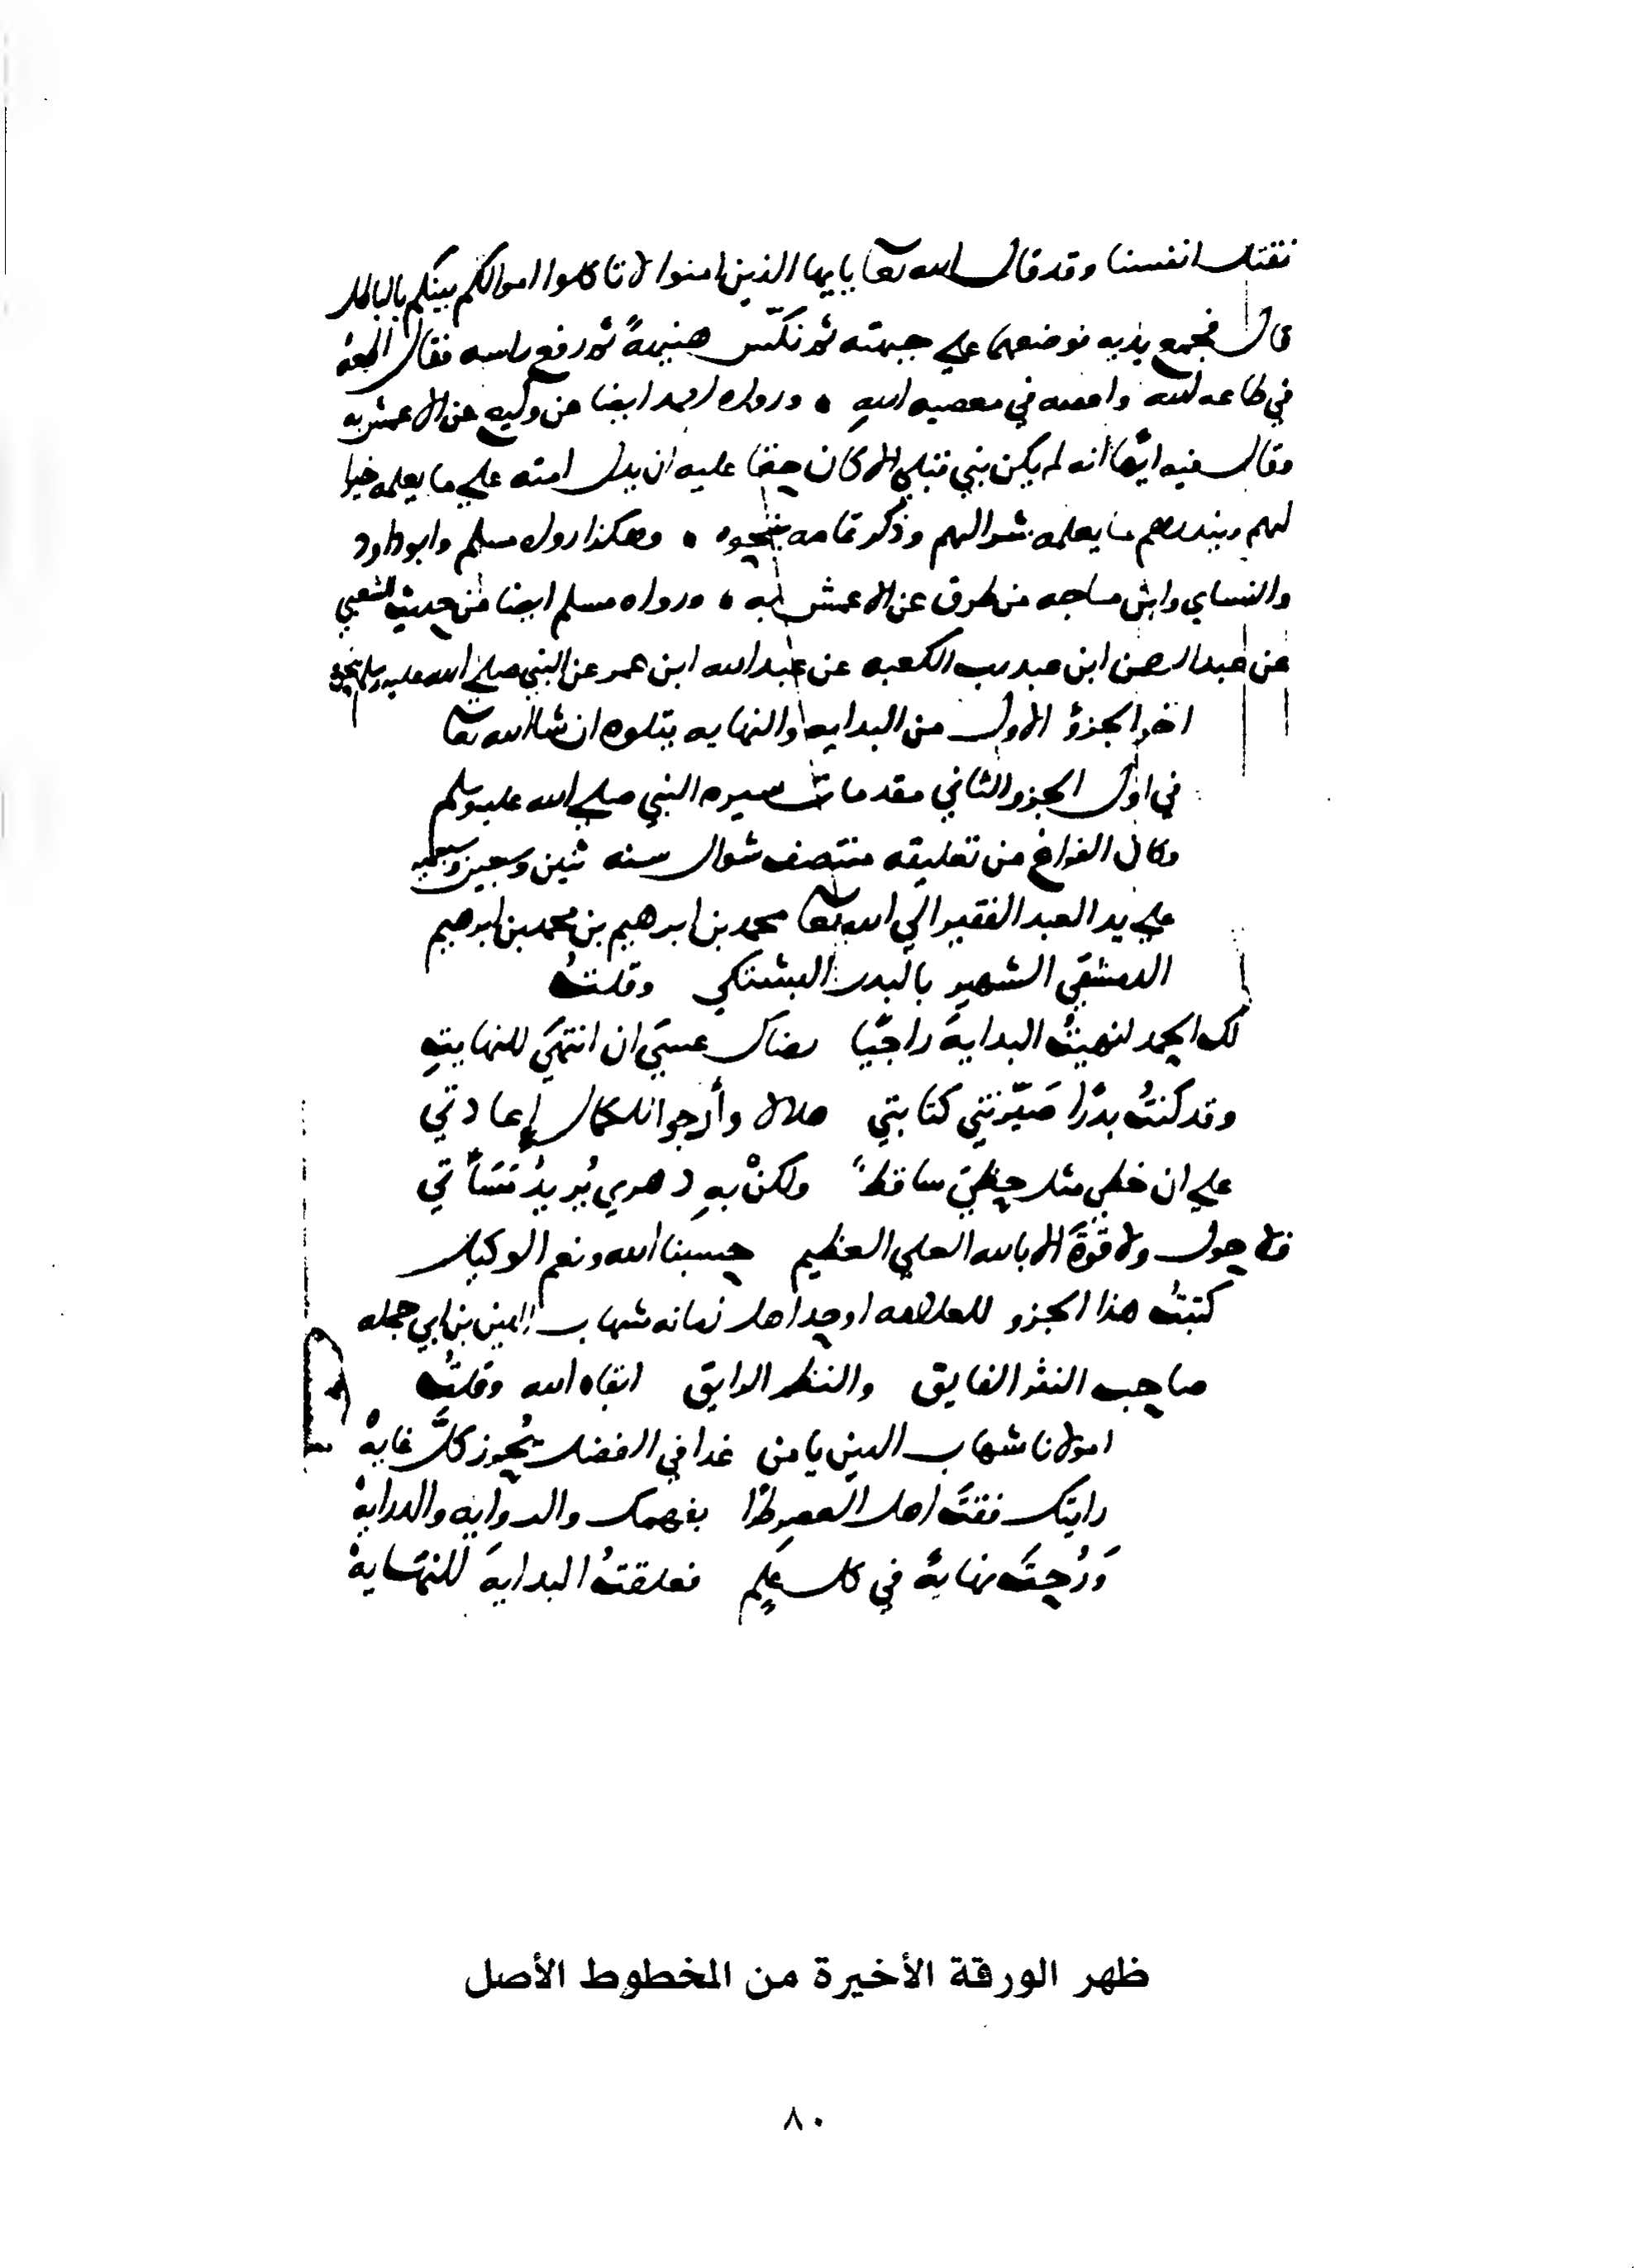 نقتل انفسنا وقد قال الله تعا يايها الذين امنوا لا تاكلوا اموالكم بينكم بالباطل
قال فجمع يديه فوضعهما على جبهته ثم نكّس هنيهةً ثم رفع راسه فقال اطعه
في طاعه الله واعصه في معصيه اللهِ ورواه احمد ايضا عن وكيع عن الاعمش به
وقال فيه ايها انه لم يكن نبي قبلي الا كان حقا عليه ان يدل امته على ما يعلمه خيرا
لهم وينذرهم ما يعلمه شرا لهم وذكر تمامه بنحوه وهكذا رواه مسلم وابو داود
والنساي وابن ماجه من طرق عن الاعمش به ورواه مسلم ايضا من حديث الشعبي
عن عبد الرحمن ابن عبد رب الكعبه عن عبد الله ابن عمر عن النبي صلى الله عليه وسلم بنحوه
اخر الجزؤ الاول من البدايه والنهايه يتلوه ان شا الله تعا
في اول الجزو الثاني مقدمات سيره النبي صلى الله عليه وسلم
وكان الفراغ من تعليقه منتصف شوال سنه ثنين وسبعين وسبعميه
على يد العبد الفقير الى الله تعا محمد بن ابرهيم بن محمد بن ابرهيم
الدمشقي الشهير بالبدر البشتكي وقلتُ
لك الحمد انهيتُ البدايةَ راجيًا رضاك عسىَ ان انتهىَ للنهايتِ
وقد كنتُ بدرًا صَيّرتني كتابتي هلالا وأرجوا للكمال إعادتي
على ان خطي مثل حظيَ ساقطًا ولكنْ بهِ دهري يُريدُ مَسَأتي
فلا حول ولا قوّةَ الا بالله العلي العظيم حسبنا الله ونعم الوكيل
كتبتُ هذا الجزو للعلامه اوحد اهل زمانه شهاب الدين بن ابي حجله
صاحب النثر الفايق والنظم الرايق ابقاه الله وقلتُ
امولانا شهاب الدين يا من غدا في الفضل يحُوز كلَّ غايهْ
رايتك فقتَ اهل العصرِ طرًا بفهمك والروايه والدرايهْ
وَرُحتَ نهايةً في كل علمٍ فعلقتُ البدايةَ للنهَايهْ
ظهر الورقة الأخيرة من المخطوط الأصل
٨٠